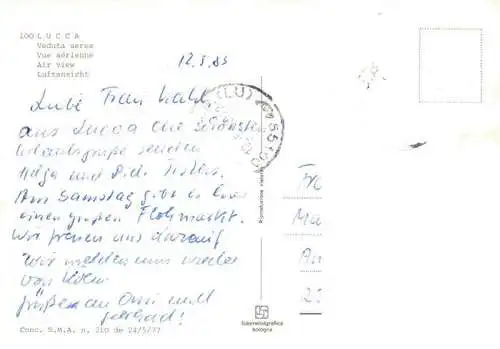 100 LUCCA
Veduta aerea
Vue aérienne
Air view
Luftansicht
12.5.85
(LU)
55100
Liebe Frau
aus Lucca die schönsten
Urlaubsgrüße senden
Helga und
Am Samstag gibt es hier
einen großen Flohmarkt.
Wir freuen uns darauf
Wir melden uns wieder
von Köln
Grüßen an Omi und
Gerhard!
Fr
Ma
An
Riproduzione vietata
fotometalgrafica
bologna
Conc. S.M.A. n. 210 de 24/5/77